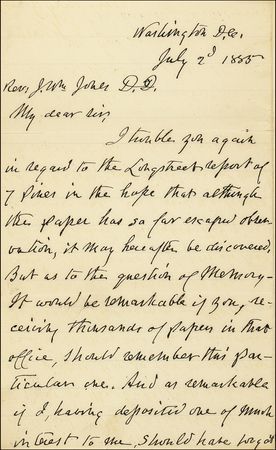 Washington D.C.
July 2d 1885
Rev. J. Wm Jones D.D.
My dear sir,
I trouble you again
in regard to the Longstreet report of
7 Pines in the hope that although
the paper has so far escaped obser-
vation, it may hereafter be discovered.
But as to the question of Memory—
It would be remarkable if you, re-
ceiving thousands of papers in that
office, should remember this par-
ticular one. And as remarkable
if I, having deposited one of much
interest to me, should have forgot